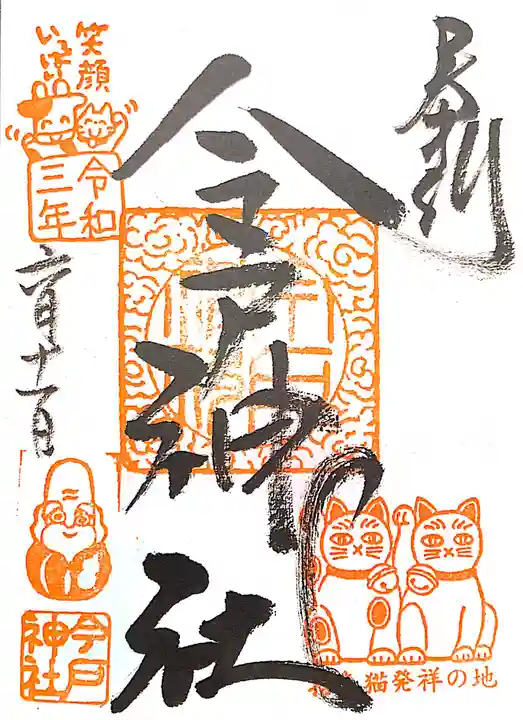 今戸神社
笑顔
いっぱい
令和
三年
六月十一日
今戸
神社
猫発祥の地